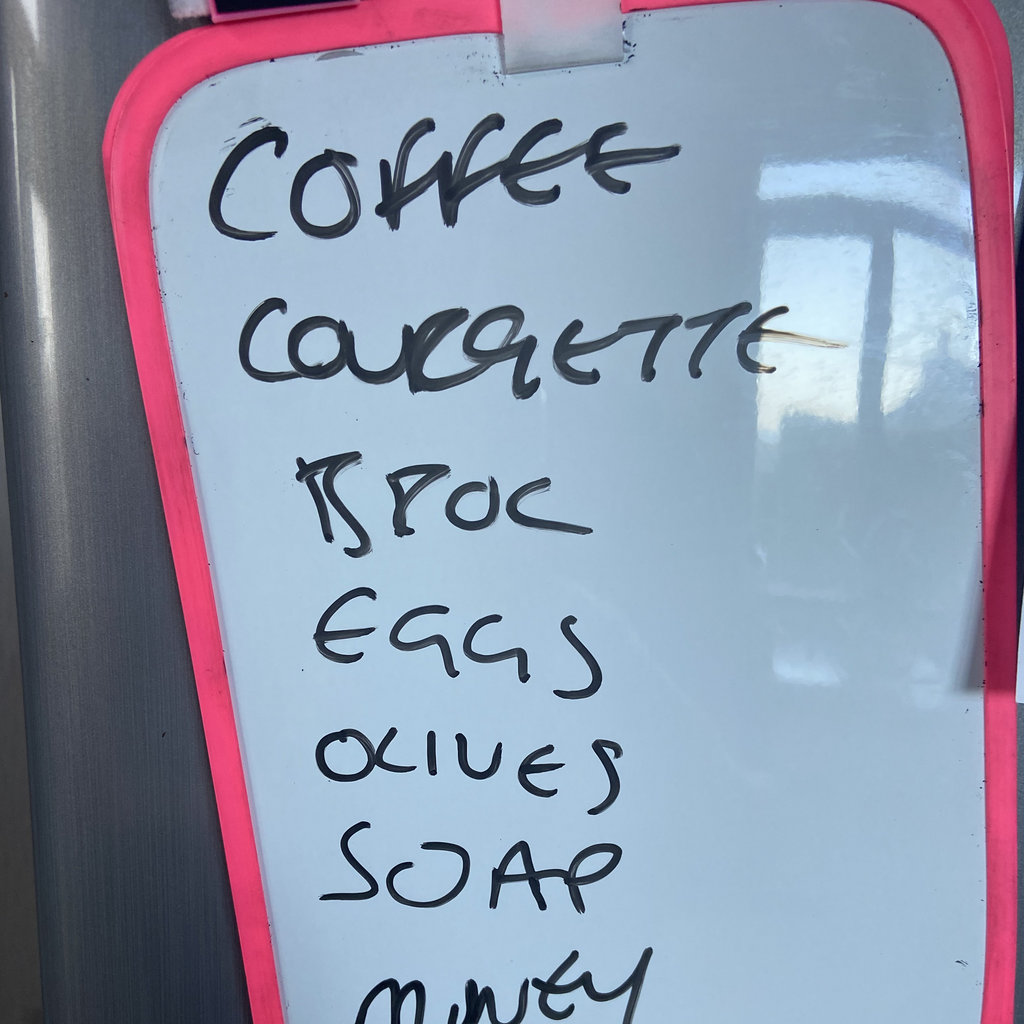 COFFEE
COURGETTE
BROC
EGGS
OLIVES
SOAP
MONEY